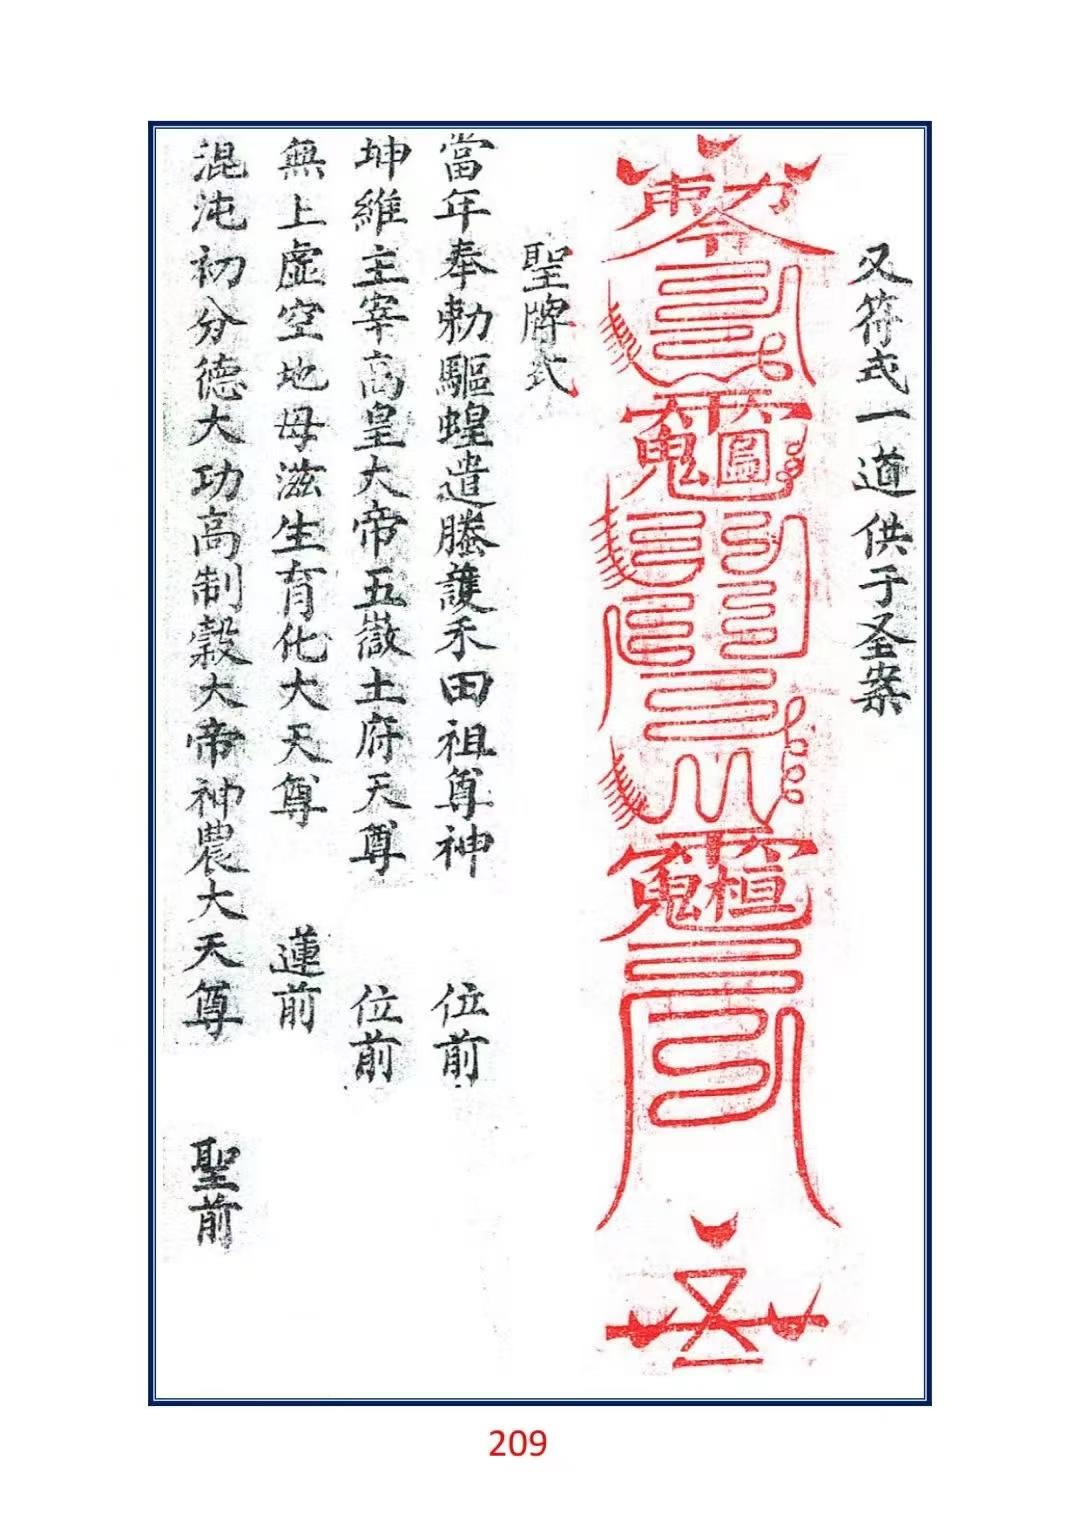 又符式一道供于圣案
聖牌式
當年奉勅驅蝗遣螣護禾田祖尊神 位前
坤維主宰高皇大帝五嶽土府天尊 位前
無上虛空地母滋生育化大天尊 蓮前
混沌初分德大功高制穀大帝神農大天尊 聖前
209